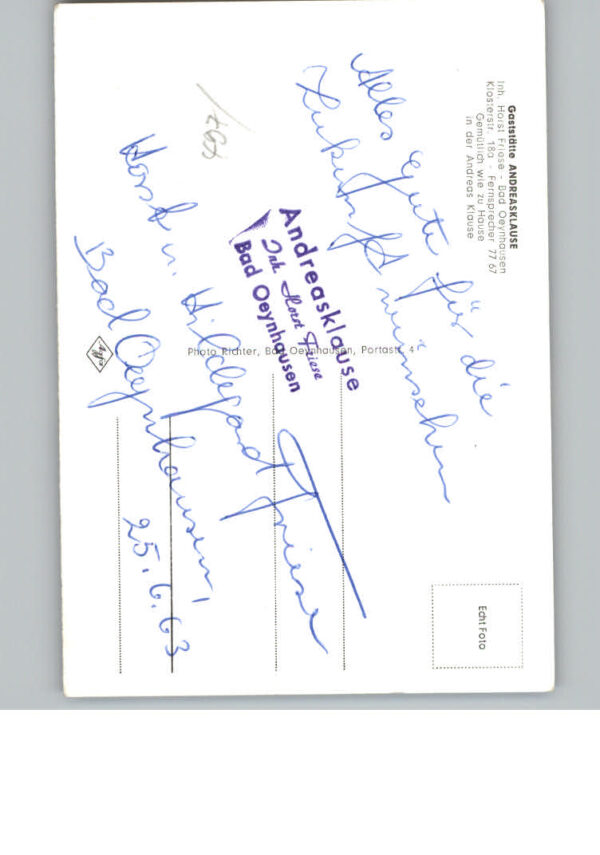 Gaststätte ANDREASKLAUSE
Inh. Horst Friese - Bad Oeynhausen
Klosterstr. 18a - Fernsprecher 77 67
Gemütlich wie zu Hause
in der Andreas Klause
Alles gute für die
Zukunft wünschen
Andreasklause
Inh. Horst Friese
Bad Oeynhausen
Horst u. Hildegard Friese
Bad Oeynhausen,
25.6.63
Photo Richter, Bad Oeynhausen, Portastr. 4
Agfa
Echt Foto